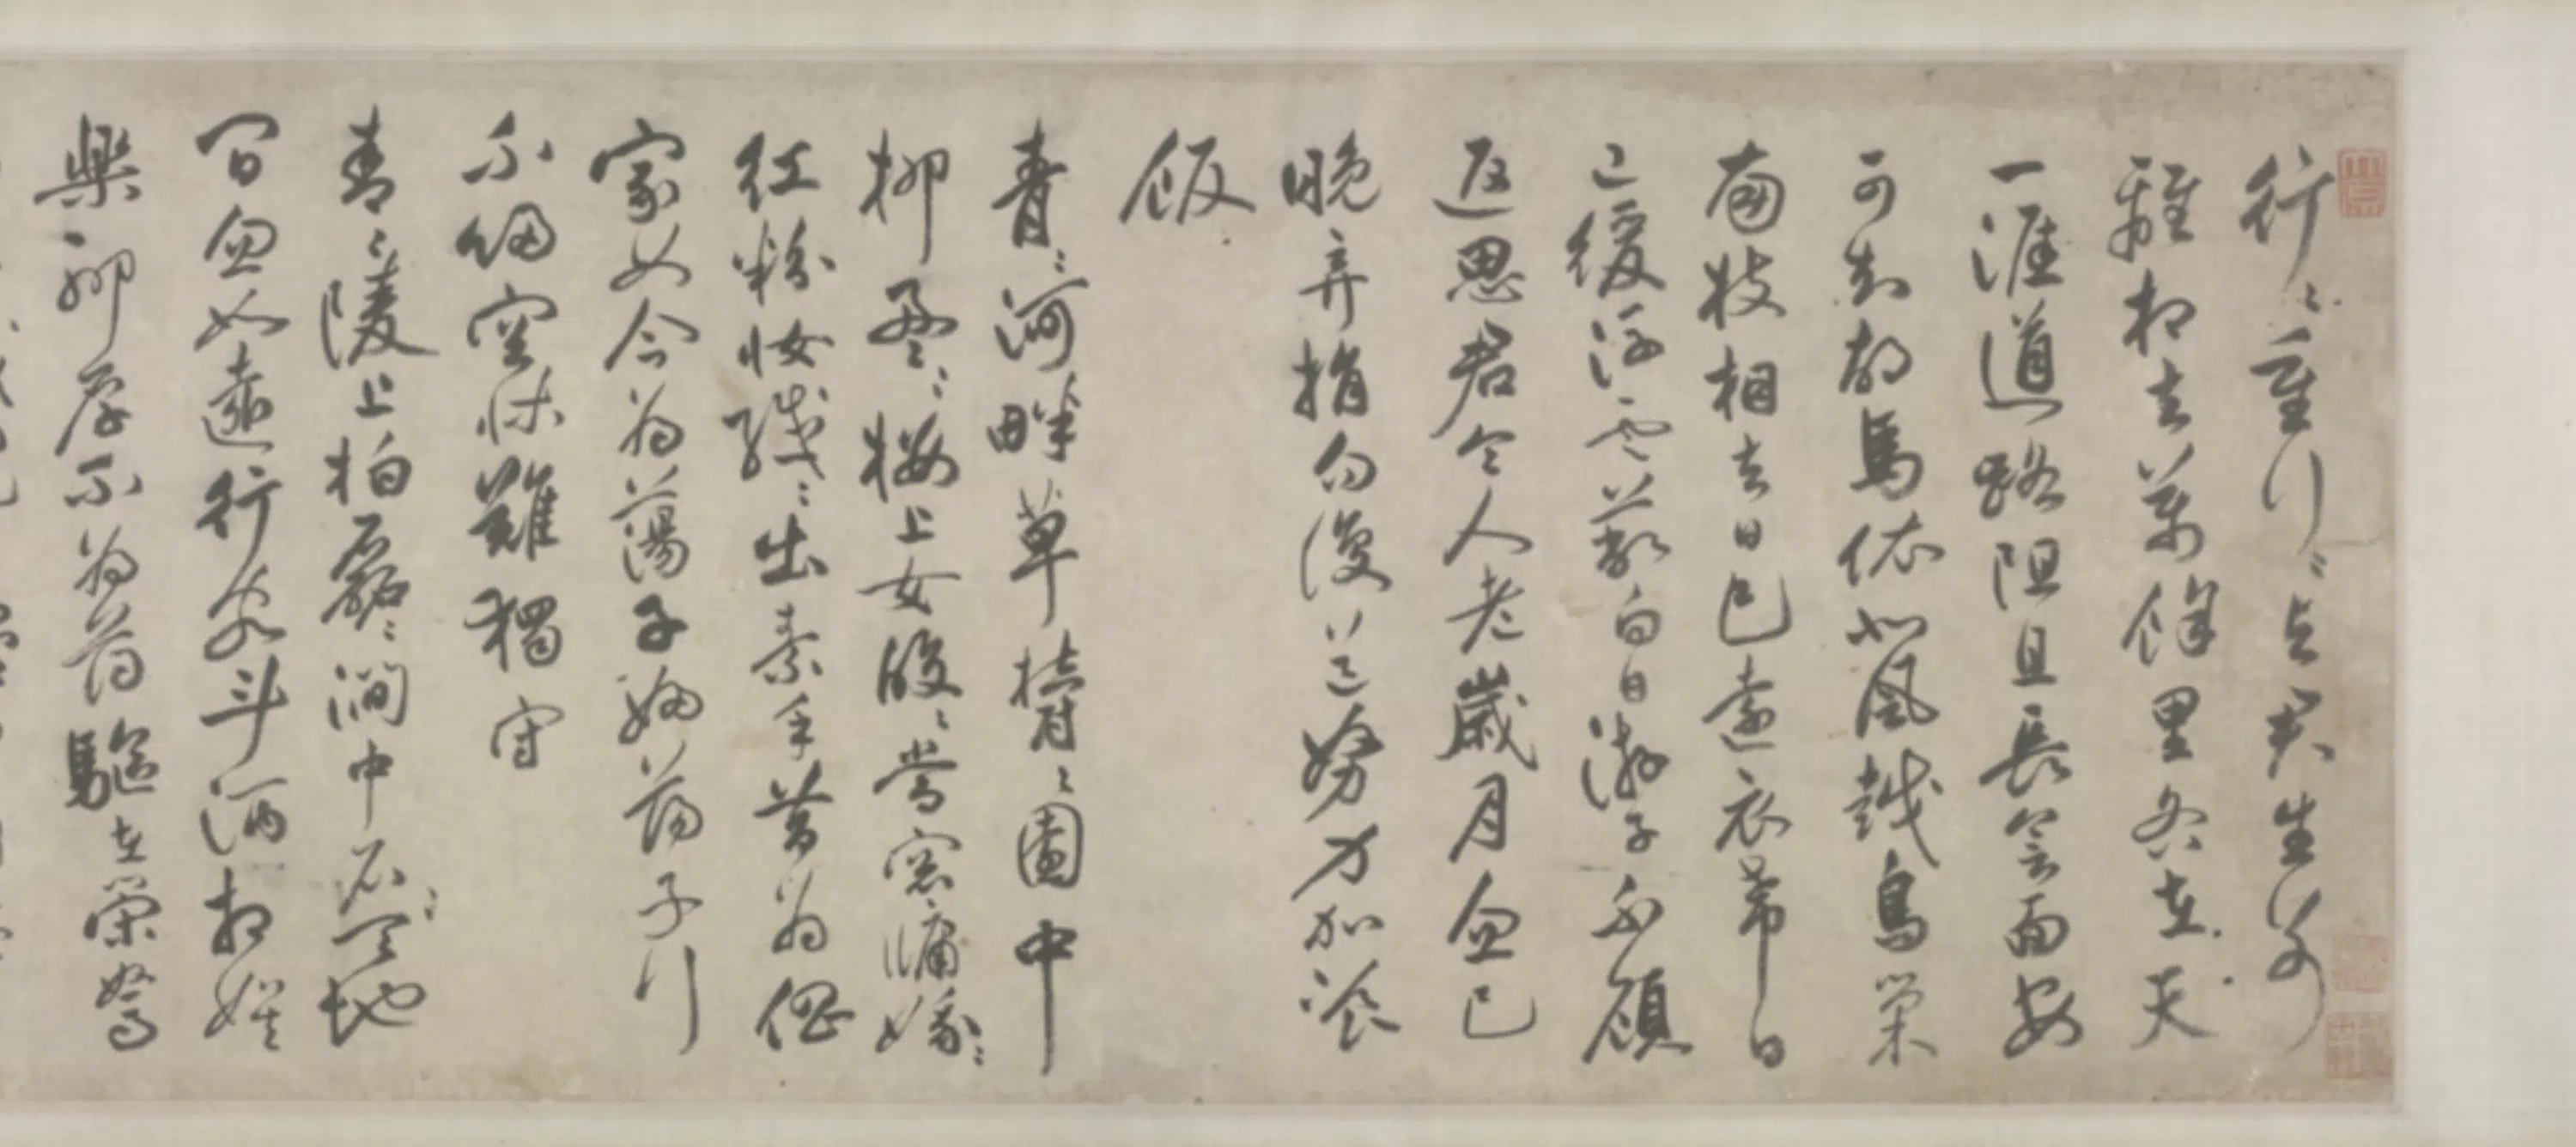 行〻重行〻与君生別
離相去萬餘里各在天
一涯道路阻且長會面安
可知胡馬依北風越鳥巢
南枝相去日已遠衣帶日
已緩浮雲蔽白日遊子不顧
返思君令人老歲月忽已
晚弃捐勿復道努力加湌
飯
青〻河畔草鬱〻園中
柳盈〻樓上女皎〻當窓牖娥〻
紅粉妝纖〻出素手昔為倡
家女今為蕩子婦蕩子行
不歸空床難獨守
青〻陵上柏磊〻澗中石天地
間忽如遠行客斗酒相娛
樂聊厚不為薄驅車策駑